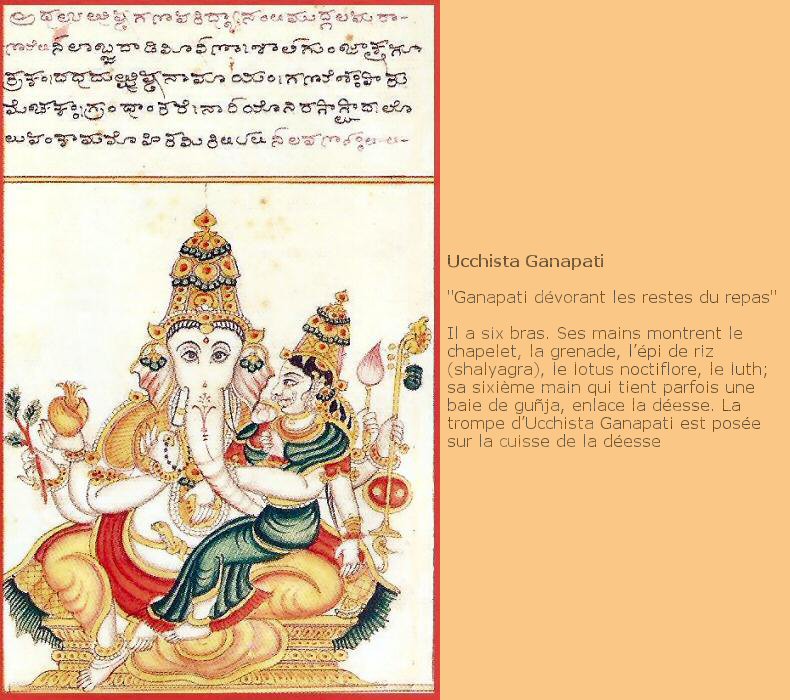 ನೀಲಾಬ್ಜದಾಡಿಮೀವೀಣಾಶಾಲಿಗುಂಜಾಕ್ಷಸೂ
ತ್ರಕಂ।ದಧದುಚ್ಛಿಷ್ಟನಾಮಾಯಂ।ಗಣೇಶಃಪಾತು
ಮೇಚಕಃ।ಗ್ರಂಥಾಂತರೇ।ನಾರೀಯೋನಿರಸಾಸ್ವಾದಲೋ
ಲುಪಂಕಾಮಮೋಹಿತಮಿತಿ
Ucchista Ganapati
"Ganapati dévorant les restes du repas"
Il a six bras. Ses mains montrent le
chapelet, la grenade, l'épi de riz
(shalyagra), le lotus noctiflore, le luth;
sa sixième main qui tient parfois une
baie de guñja, enlace la déesse. La
trompe d'Ucchista Ganapati est posée
sur la cuisse de la déesse